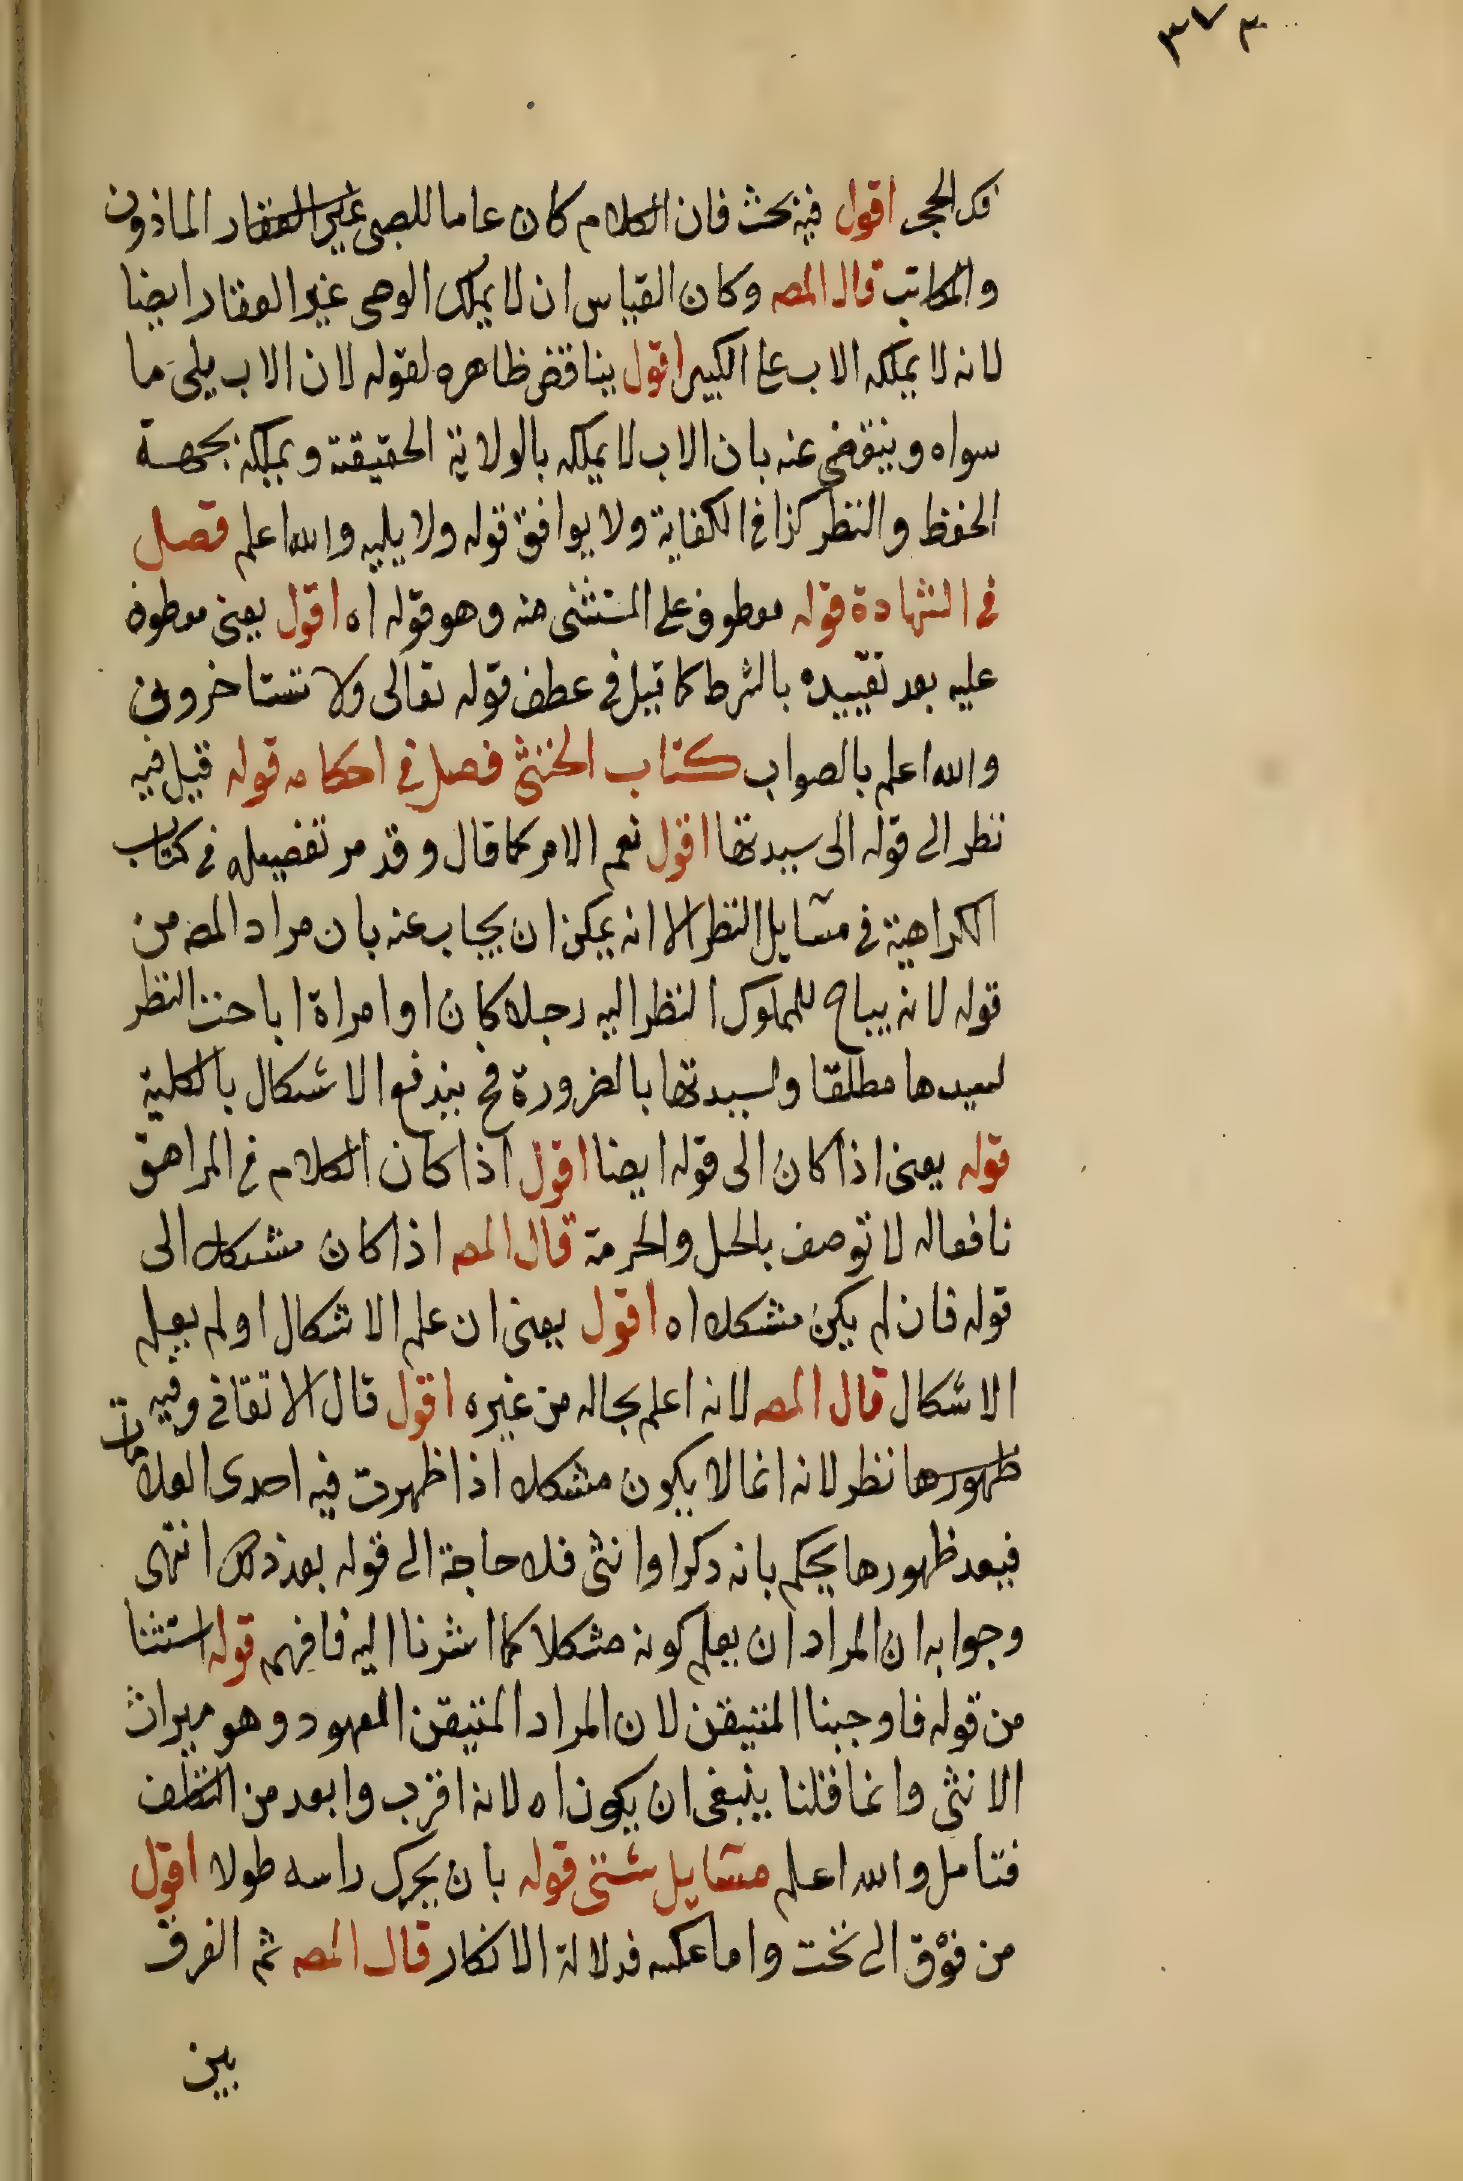 ٣٧٣
فك الحجر اقول فيه بحث فان الكلام كان عاما للصبى غير العقار الماذون
والمكاتب قال المصه وكان القياس ان لا يملك الوصى غير العقار ايضا
لانه لا يملكه الاب على الكبير اقول يناقض ظاهره لقوله لان الاب يلى ما
سواه وينقضى عنه بان الاب لا يملكه بالولاية الحقيقية ويملكه بجهة
الحفظ والنظر كذا فى الكفاية ولا يوافق قوله ولا يليه والله اعلم فصل
فى الشهادة قوله معطوف على المستثنى منه وهو قوله اه اقول يعنى معطوف
عليه بعد تقييده بالشرط كما قيل فى عطف قوله تعالى ولا تستاخرون
والله اعلم بالصواب كتاب الخنثى فصل فى احكامه قوله قيل فيه
نظر الى قوله الى سيدتها اقول نعم الامر كما قال وقد مر تفصيله فى كتاب
الكراهية فى مسايل النظر الا انه يمكن ان يجاب عنه بان مراد المصه من
قوله لانه يباح للمملوك النظر اليه رجلا كان او امراة اباحة النظر
لسيدها مطلقا ولسيدتها بالضرورة فح يندفع الاشكال بالكلية
قوله يعنى اذا كان الى قوله ايضا اقول اذا كان الكلام فى المراهق
فافعاله لا توصف بالحل والحرمة قال المصه اذا كان مشكلا الى
قوله فان لم يكن مشكلا اه اقول يعنى ان علم الاشكال او لم يعلم
الاشكال قال المصه لانه اعلم بحاله من غيره اقول قال الاتقانى وفيه
ظهورها نظر لانه انما لا يكون مشكلا اذا ظهرت فيه احدى العلامات
فبعد ظهورها يحكم بانه ذكرا وانثى فلا حاجة الى قوله بعد ذلك انتهى
وجوابه ان المراد ان يعلم كونه مشكلا كما اشرنا اليه فافهم قوله استثنا
من قوله فاوجبنا المتيقن لان المراد المتيقن المعهود وهو ميراث
الانثى وانما قلنا ينبغى ان يكون اه لانه اقرب وابعد من التكلف
فتامل والله اعلم مسايل شتى قوله بان يحرك راسه طولا اقول
من فوق الى تحت واما عكسه فدلالة الانكار قال المصه ثم الفرق
بين